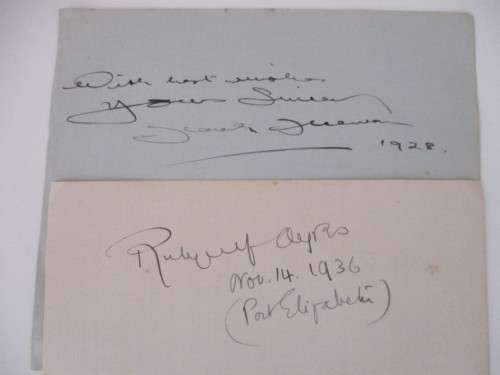 With best wishes
Yours Sincerely
1928.
Ruby M Ayres
Nov. 14. 1936
(Port Elizabeth)